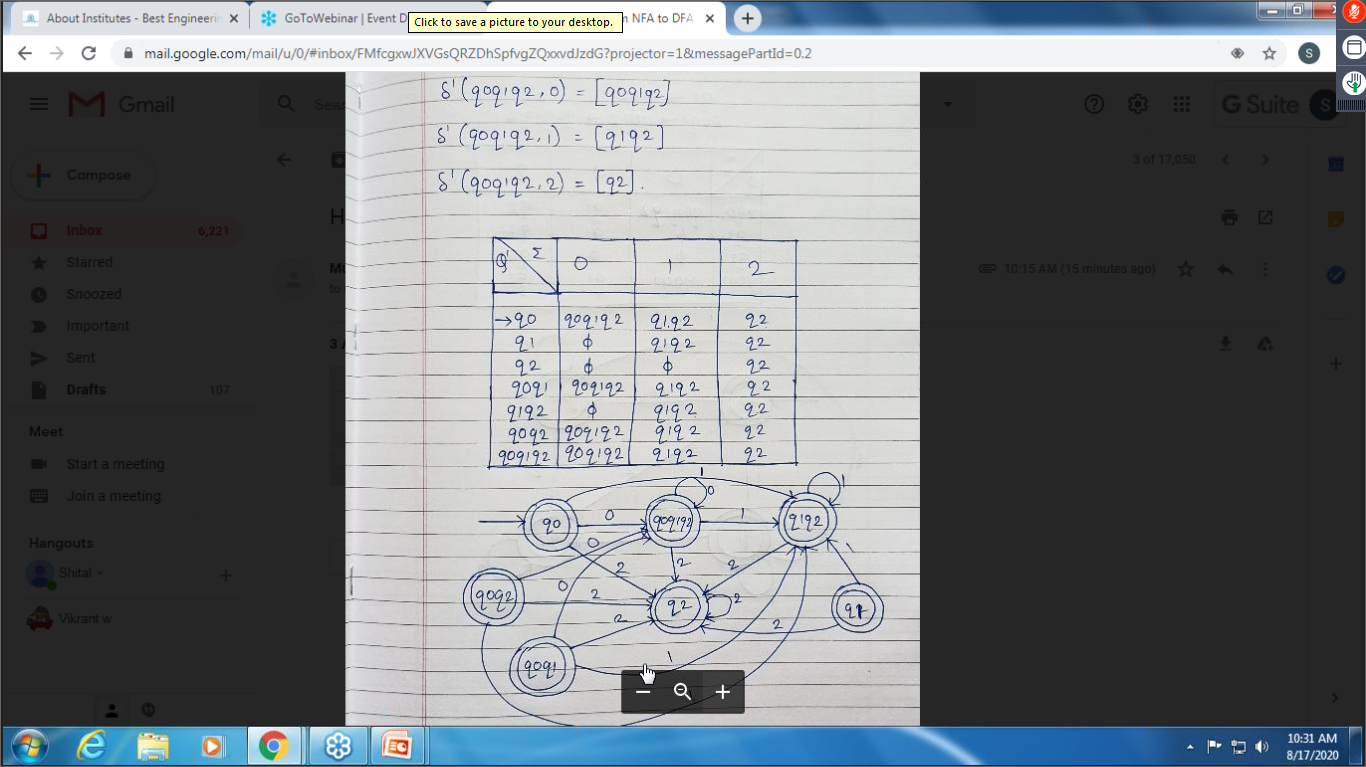 About Institutes - Best Engineerin
GoToWebinar | Event D
Click to save a picture to your desktop.
n NFA to DFA
mail.google.com/mail/u/0/#inbox/FMfcgxwJXVGsQRZDhSpfvgZQxxvdJzdG?projector=1&messagePartId=0.2
S
Gmail
Sea
G Suite
S
Compose
3 of 17,050
Inbox 6,221
Starred
Snoozed
Important
Sent
Drafts 107
H
Mu
to
10:15 AM (15 minutes ago)
3 A
Meet
Start a meeting
Join a meeting
Hangouts
Shital
Vikrant w
δ'(q0q1q2, 0) = [q0q1q2]
δ'(q0q1q2, 1) = [q1q2]
δ'(q0q1q2, 2) = [q2].
Q' Σ 0 1 2
→q0 q0q1q2 q1q2 q2
q1 ϕ q1q2 q2
q2 ϕ ϕ q2
q0q1 q0q1q2 q1q2 q2
q1q2 ϕ q1q2 q2
q0q2 q0q1q2 q1q2 q2
q0q1q2 q0q1q2 q1q2 q2
1
0
1
q0 0 q0q1q2 1 q1q2
0
2
2
2
1
0
q0q2 2 q2 2 q1
2
2
q0q1 1
10:31 AM
8/17/2020